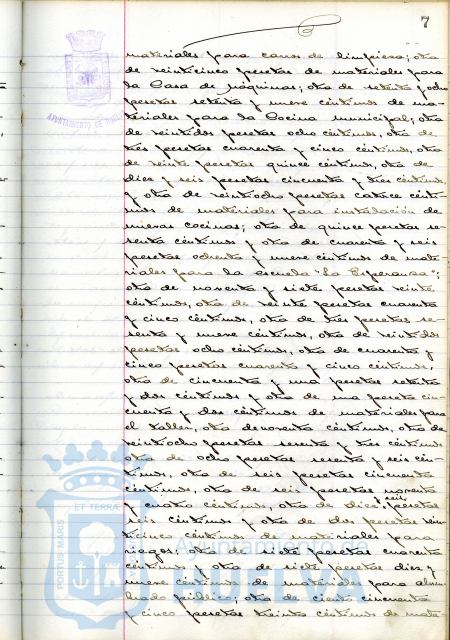 7
AYUNTAMIENTO DE HUELVA
materiales para carros de limpieza; otra
de veinticinco pesetas de materiales para
la Casa de Máquinas; otra de setenta y ocho
pesetas setenta y nueve céntimos de ma-
teriales para la Cocina municipal; otra
de veintidos pesetas ocho céntimos, otra de
tres pesetas cuarenta y cinco céntimos, otra
de veinte pesetas quince céntimos, otra de
diez y seis pesetas cincuenta y tres céntimos
y otra de veintiocho pesetas catorce cénti-
mos de materiales para instalación de
nuevas cocinas; otra de quince pesetas se-
senta céntimos y otra de cuarenta y seis
pesetas ochenta y nueve céntimos de mate-
riales para la escuela "La Esperanza";
otra de noventa y siete pesetas veinte
céntimos, otra de veinte pesetas cuarenta
y cinco céntimos, otra de tres pesetas se-
senta y nueve céntimos, otra de veintidos
pesetas ocho céntimos, otra de cuarenta y
cinco pesetas cuarenta y cinco céntimos,
otra de cincuenta y una pesetas setenta
y dos céntimos y otra de una peseta cin-
cuenta y dos céntimos de materiales para
el taller, otra de noventa céntimos, otra de
veintiocho pesetas sesenta y tres céntimos
otra de ocho pesetas sesenta y seis cén-
timos, otra de seis pesetas cincuenta
céntimos, otra de seis pesetas noventa
y cuatro céntimos, otra de diez y seis pesetas
seis céntimos y otra de dos pesetas vein-
ticinco céntimos de materiales para
riegos; otra de siete pesetas cuarenta
céntimos y otra de siete pesetas diez y
nueve céntimos de materiales para alum-
brado público; otra de ciento cincuenta
y cinco pesetas treinta céntimos de mate-
PORTUS MARIS
ET TERRÆ
Ayuntamiento de
HUELVA